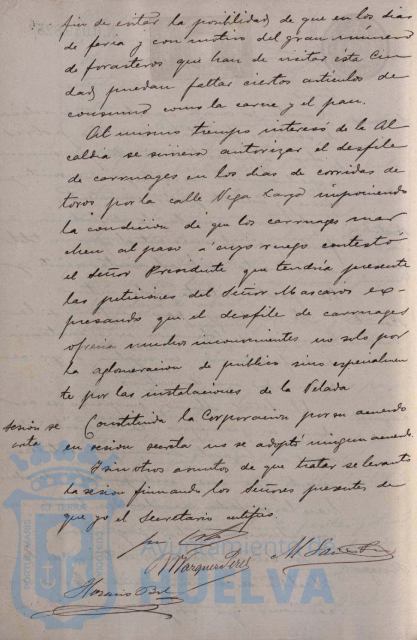 fin de evitar la posibilidad de que en los dias
de feria y con motivo del gran numero
de forasteros que han de visitar ésta Ciu
dad, puedan faltar ciertos artículos de
consumo como la carne y el pan.
Al mismo tiempo interesó de la Al
caldia se sirviera autorizar el desfile
de carruages en los dias de corridas de
toros por la calle Vega Larga imponiendo
la condición de que los carruages mar
chen al paso á cuyo ruego contestó
el Señor Presidente que tendría presente
las peticiones del Señor Mascarós ex-
presando que el desfile de carruages
ofrecia muchos inconvenientes no solo por
la aglomeracion de público sino especialmen
te por las instalaciones de la Velada
Sesión se
creta
Constituida la Corporación por su acuerdo
en sesion secreta no se adoptó ningun acuerdo.
Y sin otros asuntos de que tratar se levantó
la sesion firmando los Señores presentes de
que yo el Secretario certifico.
Marquez Perez
Ayuntamiento de
HUELVA